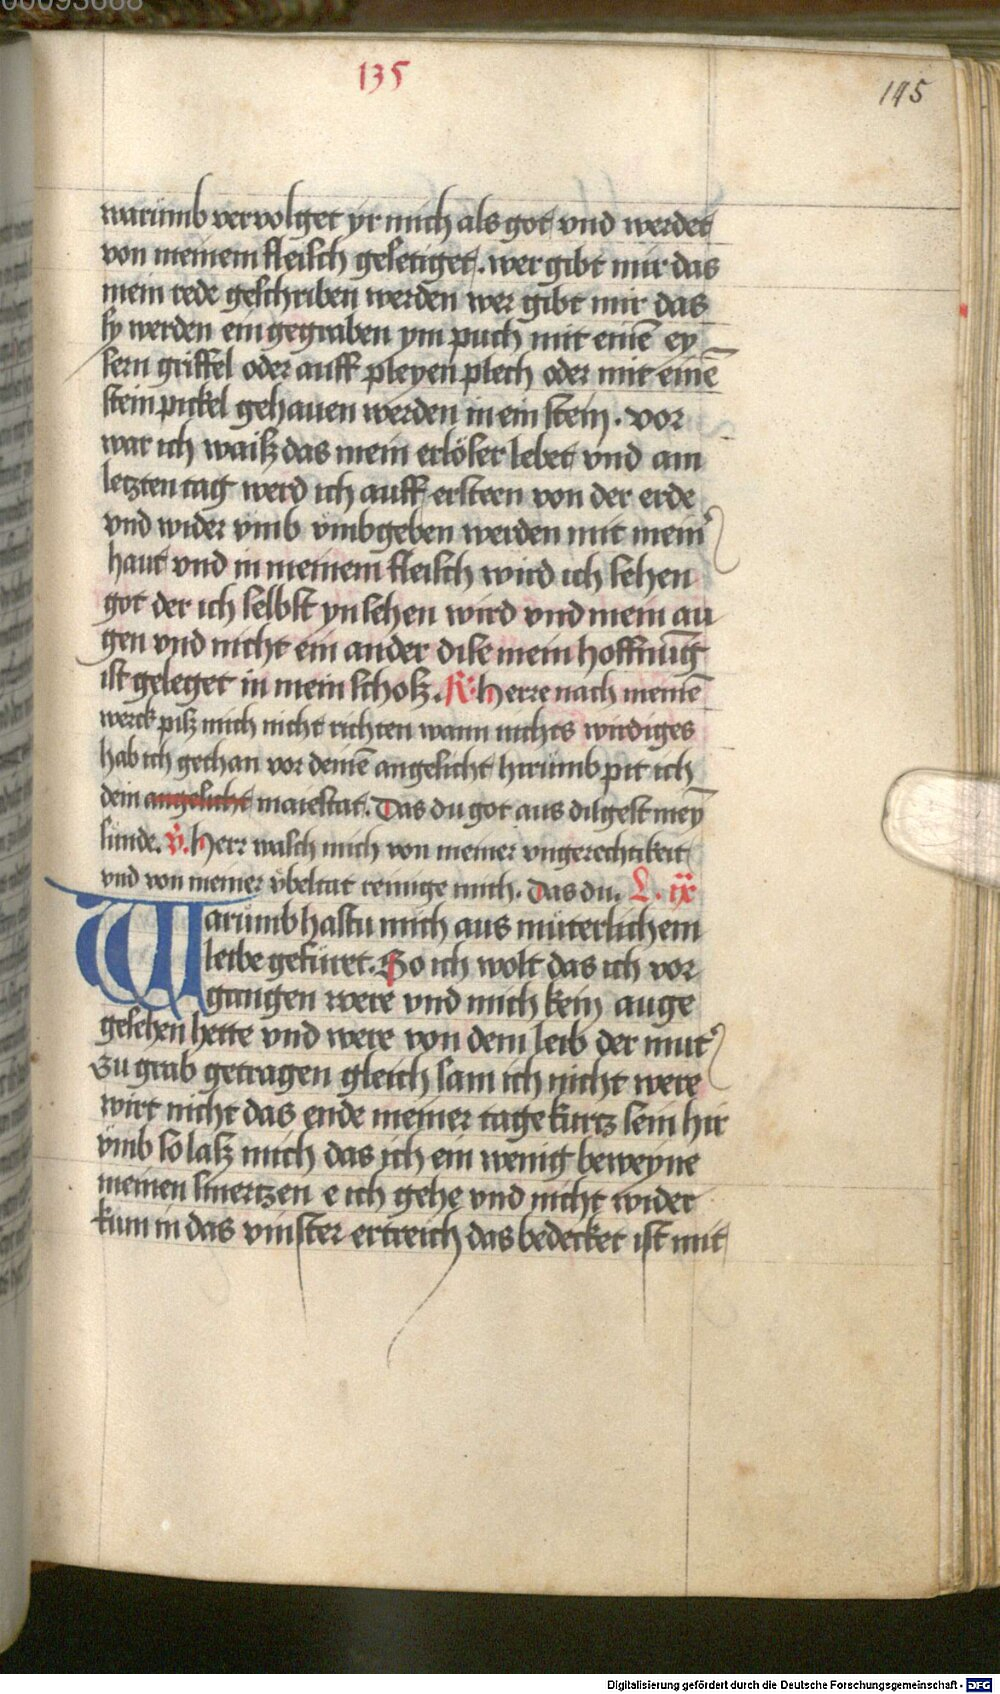 00093668
135
195
warumb vervolget yr mich als got vnd werdet
von meinem fleisch gesetiget. wer gibt mir das
mein rede geschriben werden wer gibt mir das
sy werden ein gegraben ym puch mit einē ey
sern griffel oder auff pleyen plech oder mit einē
stein pickel gehauen werden in ein stein. vor
war ich waiß das mein erlöser lebet vnd am
letzten tag werd ich auff ersteen von der erde
vnd wider vmb vmbgeben werden mit mein̛
haut vnd in meinem fleisch wird ich sehen
got der ich selbst yn sehen wird vnd mein au
gen vnd nicht ein ander dise mein hoffnūg
ist geleget in mein schosz. R. Herre nach meinē
werck pisz mich nicht richten wann nichts wirdiges
hab ich gethan vor deinē angesicht hirumb pit ich
dein angesicht maiestat. Das du got aus dilgest mey̅
sunde. V. Herr wasch mich von meiner vngerechtikeit
vnd von meiner vbeltat reinige mich. Das du. L. ix
Warumb hastu mich aus müterlichem
leibe gefüret. So ich wolt das ich vor
gangen were vnd mich kein auge
gesehen hette vnd were von dem leib der mut̛
zu grab getragen gleich sam ich nicht were
wirt nicht das ende meiner tage kurtz sein hir
vmb so laß mich das ich ein wenig beweyne
meinen smertzen e ich gehe vnd nicht wider
kum in das vinster ertreich das bedecket ist mit
Digitalisierung gefördert durch die Deutsche Forschungsgemeinschaft - DFG